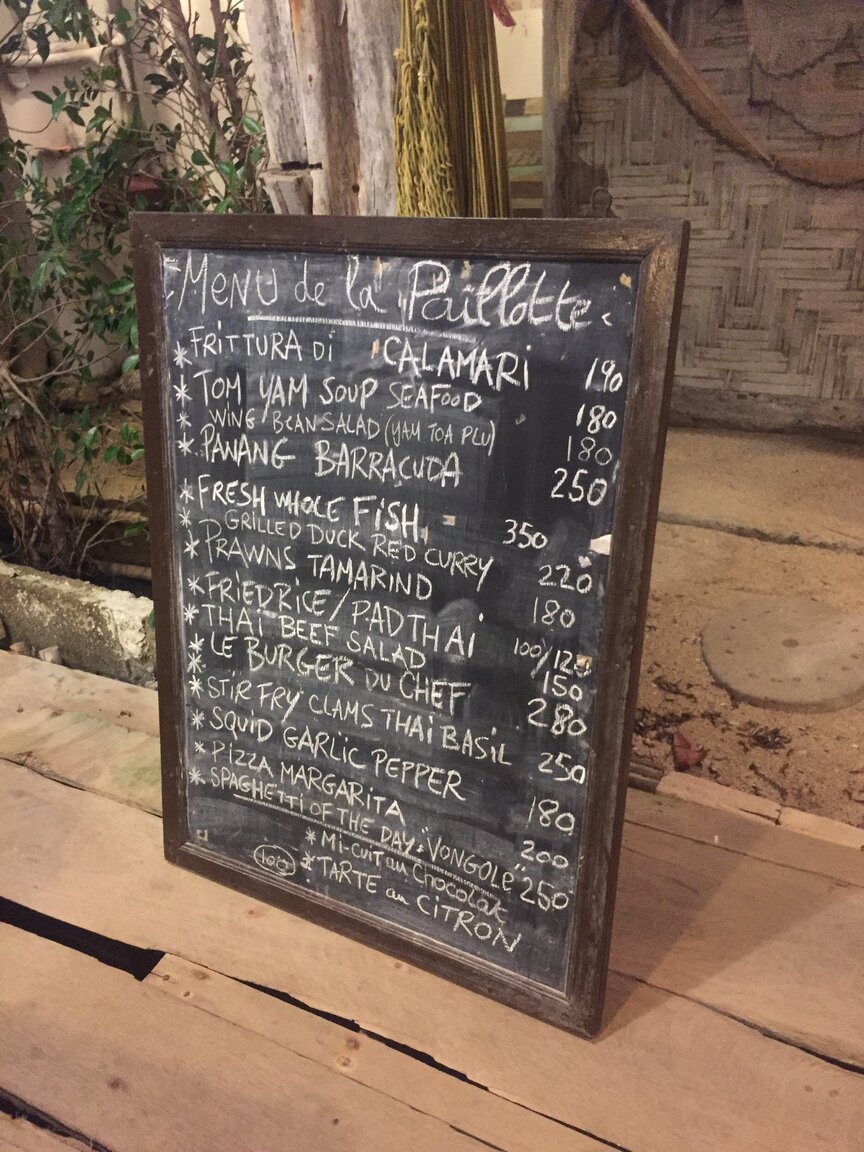 MENU de la Paillotte
* FRITTURA Di CALAMARi 190
* TOM YAM SOUP SEAFOOD 180
* WING BEAN SALAD (YAM TOA PLU) 180
* PANANG BARRACUDA 250
* FRESH WHOLE FiSH 350
* GRILLED DUCK RED CURRY 220
* PRAWNS TAMARIND 180
* FRIEDRiCE / PADTHAi 100/120
* THAI BEEF SALAD 150
* LE BURGER DU CHEF 280
* STiR FRY CLAMS THAi BASiL 250
* SQUID GARLIC PEPPER 180
* PiZZA MARGARiTA 200
* SPAGHETTi OF THE DAY: "VONGOLE" 250
* Mi-CUiT au Chocolat
100 * TARTE au CiTRON